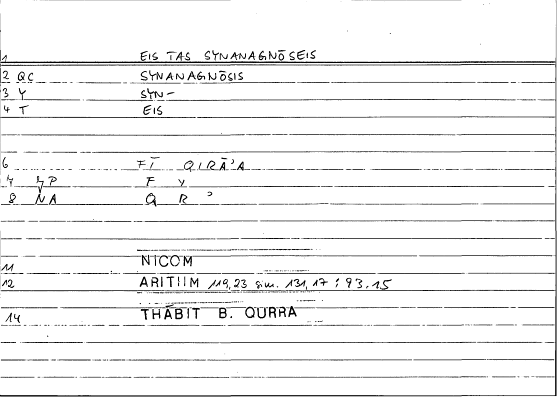 1 EIS TAS SYNANAGNŌSEIS
2 QC SYNANAGNŌSIS
3 Y SYN-
4 T EIS
6 FĪ QIRĀ'A
7 YP F Y
8 NA Q R '
11 NICOM
12 ARITIIM 119,23 sim. 131,17 : 93.15
14 THĀBIT B. QURRA